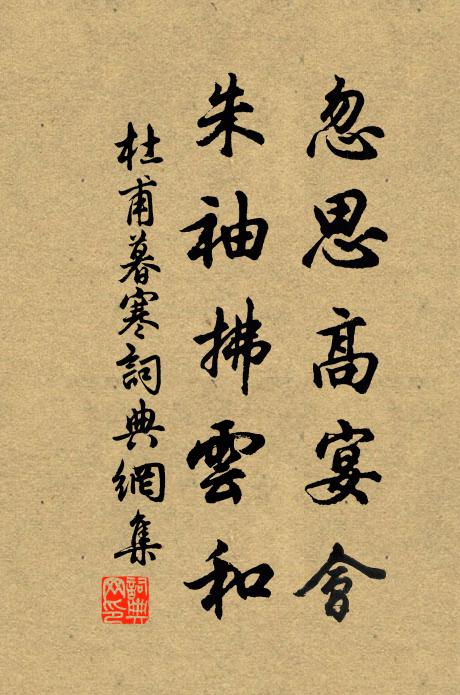 忽思高宴會
朱袖拂雲和
杜甫暮寒詞典網集
詞典网印